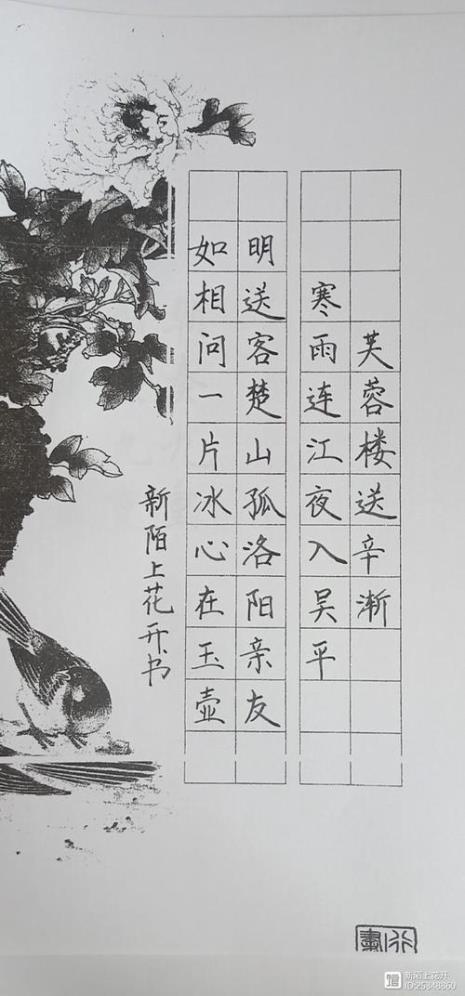 芙蓉楼送辛渐
寒雨连江夜入吴平
明送客楚山孤洛阳亲友
如相问一片冰心在玉壶
新陌上花开书
新陌上花开
ID:25848860